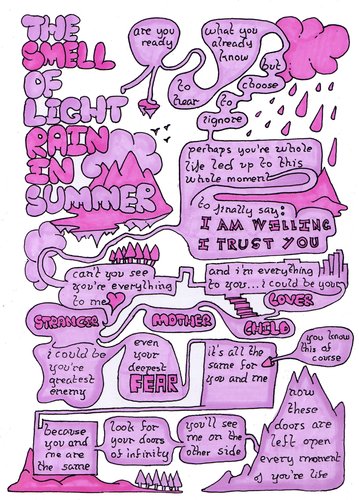 THE
SMELL
OF
LIGHT
RAIN
IN
SUMMER
are you
ready
to
hear
what you
already
know
but
choose
to
ignore
perhaps you're whole
life led up to this
whole moment
to finally say:
I AM WILLING
I TRUST YOU
can't you see
you're everything
to me
and i'm everything
to you... i could be your
LOVER
STRANGER
MOTHER
CHILD
i could be
you're
greatest
enemy
even
your
deepest
FEAR
it's all the
same for
you and me
you know
this of
course
because
you and
me are
the same
look for
your doors
of infinity
you'll see
me on the
other side
now
these
doors are
left open
every moment
of you're life